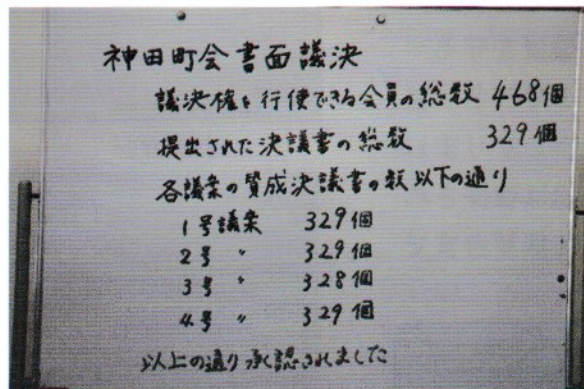 神田町会書面議決
議決権を行使できる会員の総数 468個
提出された決議書の総数 329個
各議案の賛成決議書の数以下の通り
1号議案 329個
2号 〃 329個
3号 〃 328個
4号 〃 329個
以上の通り承認されました